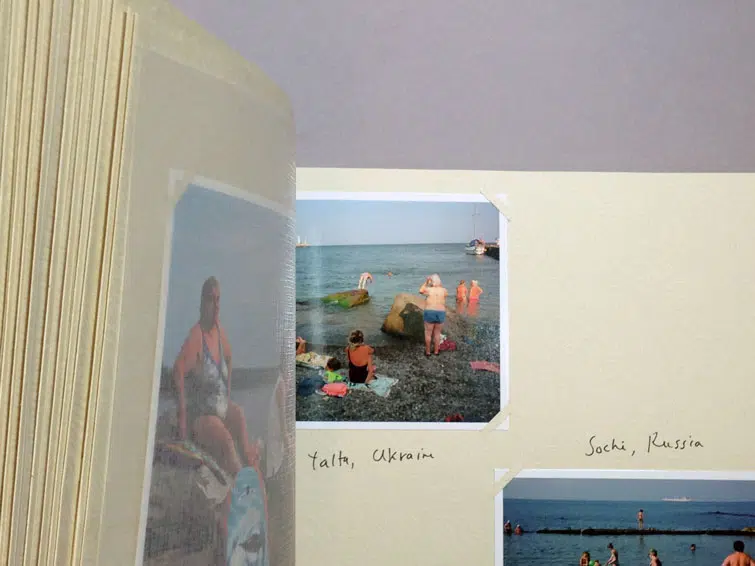 Yalta, Ukraine
Sochi, Russia